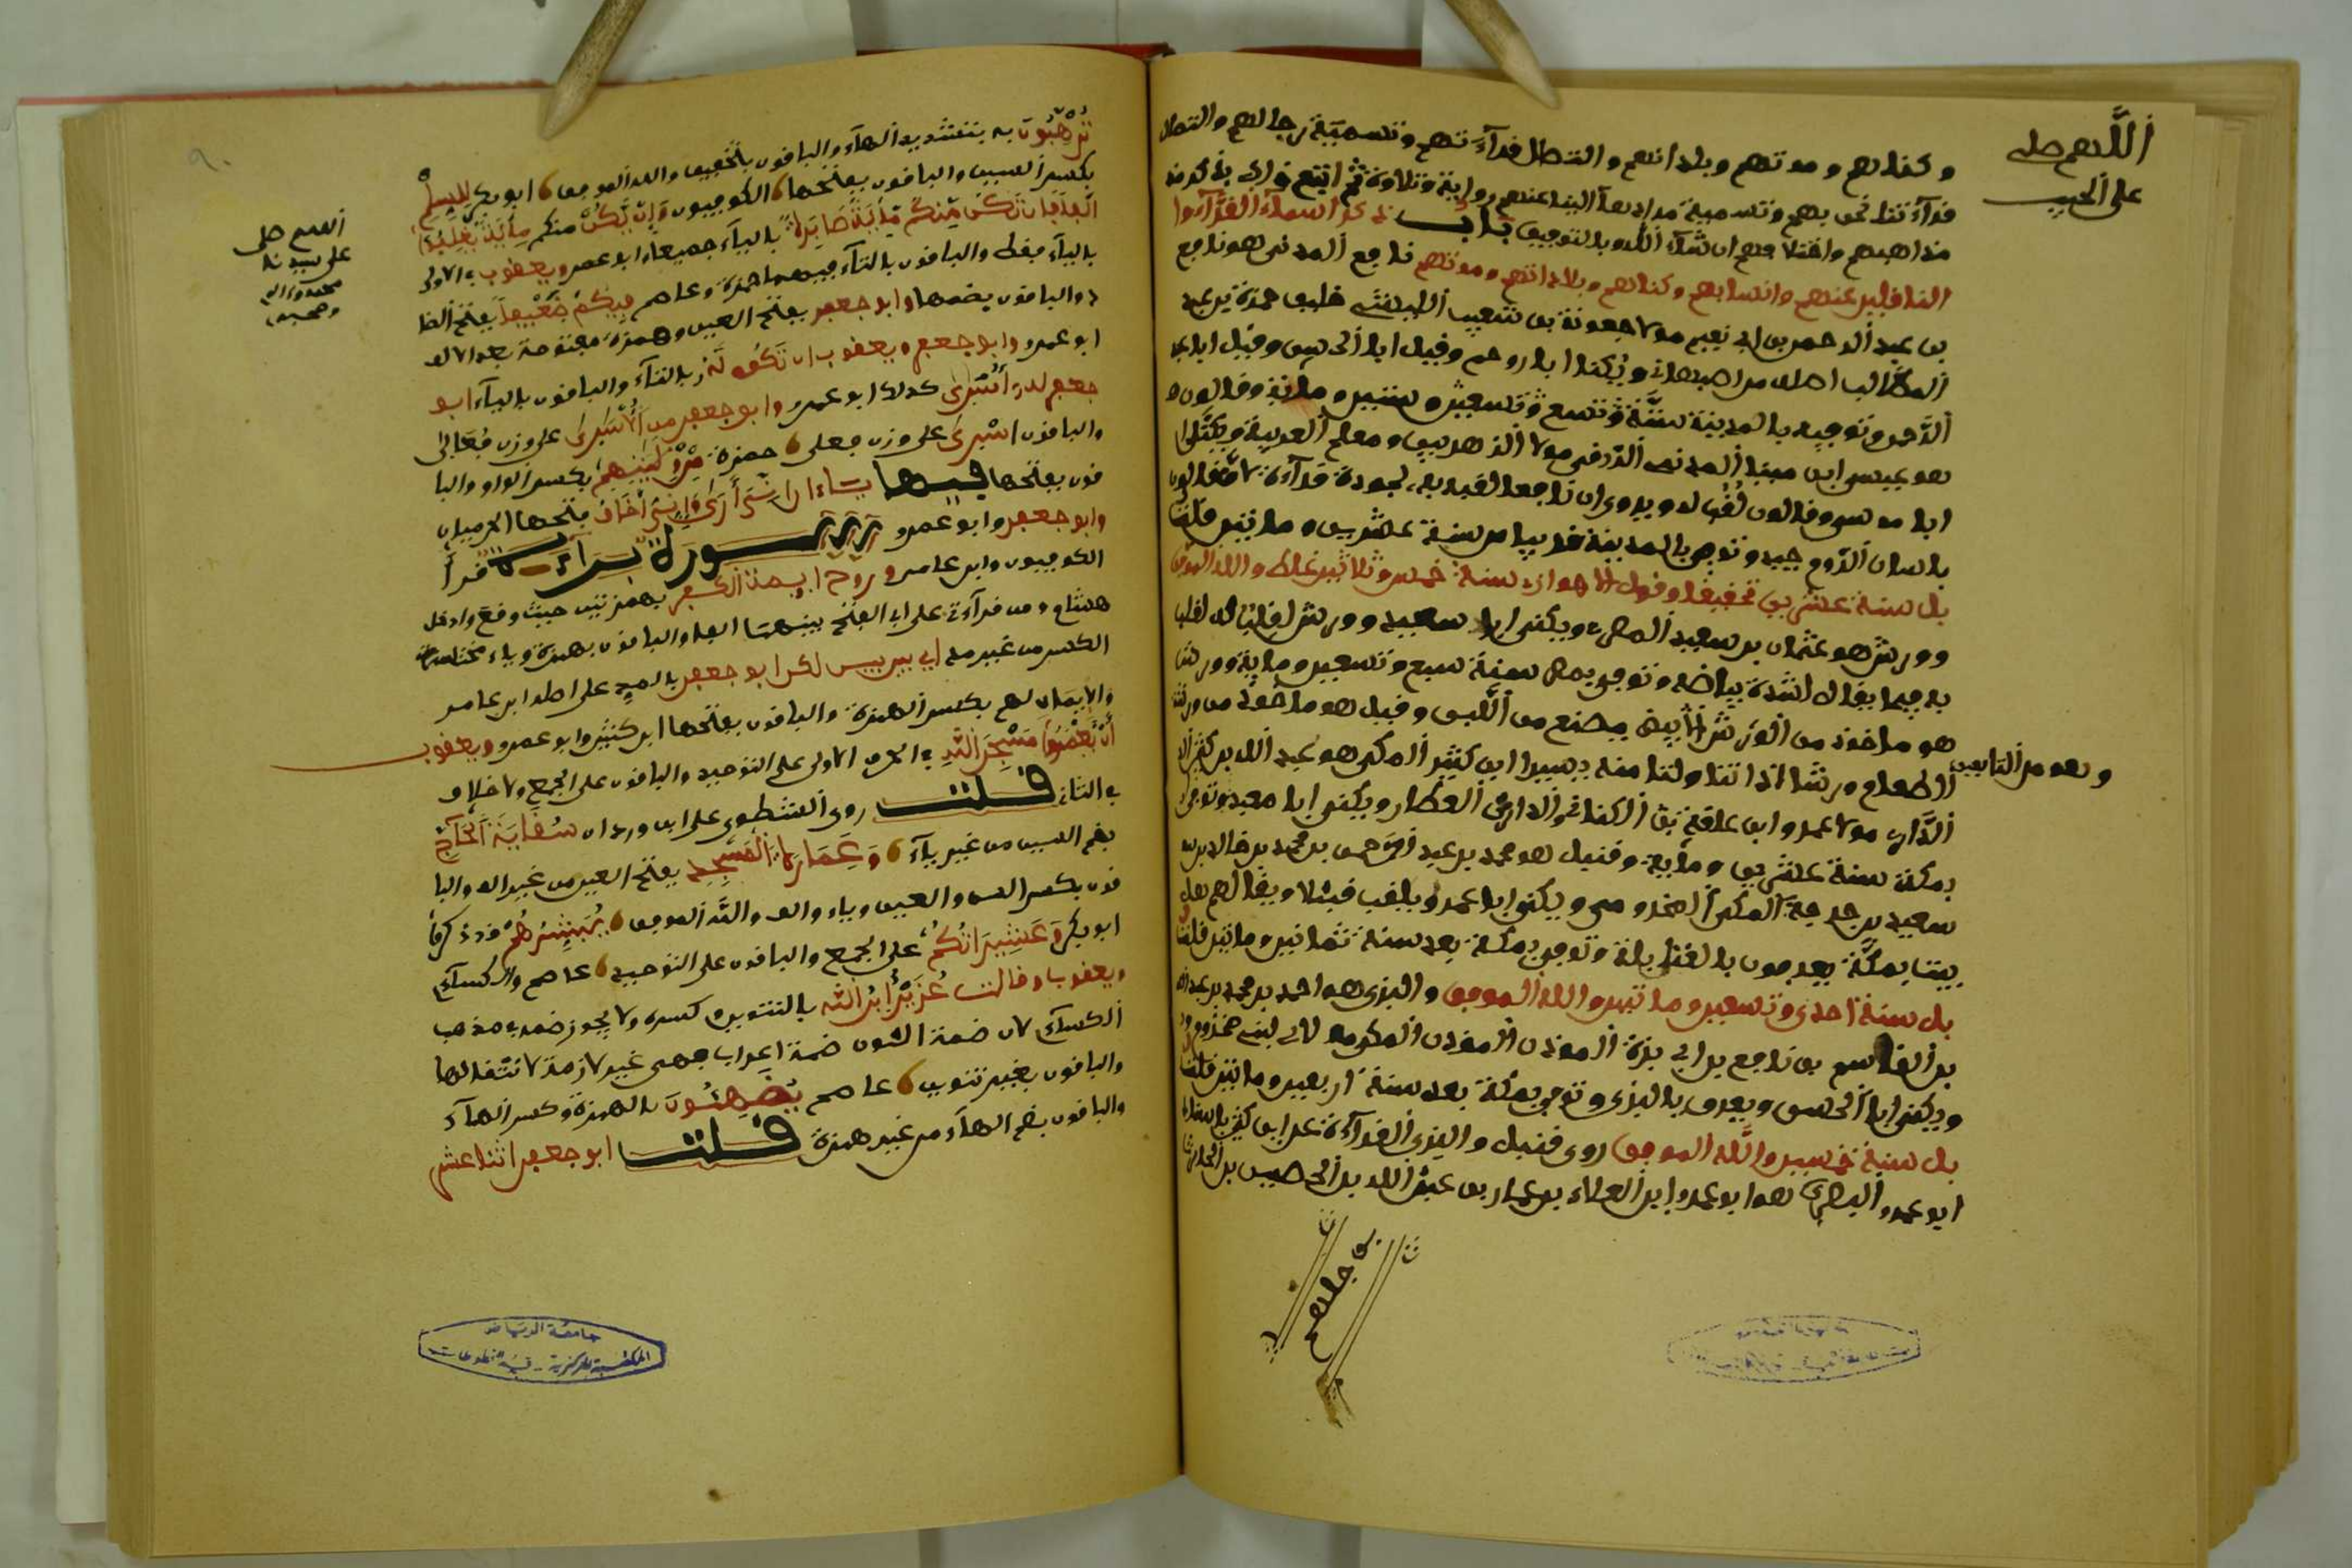 اللهم صل
على الحبيب
وكناهم وموتهم وبلدانهم واتصال قرآءتهم وتسمية رجالهم واتصال
قرآءتنا نحن بهم وتسمية من ادعا الينا عنهم رواية وتلاوة ثم اتبع ذلك بذكر
مذاهبهم واختلافهم ان شآء الله وبالتوفيق باب ذكر اسمآء القرآء و
الناقلين عنهم وانسابهم وكناهم وبلدانهم وموتهم نافع المدني هو نافع
بن عبد الرحمن بن ابي نعيم مولا جعونة بن شعوب الليثي حليف حمزة بن عبد
المطالب اصله من اصبهان ويكنا ابا رويم وقيل ابا الحسن وقيل ابا عبد
الرحمن وتوفي بالمدينة سنة تسع وتسعين ومائة وقالون
هو عيسى ابن مينا المدني الزرقي مولا الزهريين ومعلم العربية ويكنا
ابا موسى وقالون لقب له ويروى ان نافعا لقبه به لجودة قرآءته لان قالون
بلسان الروم جيد وتوفي بالمدينة قريبا من سنة عشرين ومائتين قلت
بل سنة عشرين تحقيقا وقول الاهوازي سنة خمس وثلاثين غلط والله الموفق
وورش هو عثمان بن سعيد المصري ويكنى ابا سعيد وورش لقب له لقب
به فيما يقال لشدة بياضه وتوفي بمصر سنة سبع وتسعين وماية وورش
هو ماخوذ من الورش الابيض يصنع من اللبن وقيل هو ماخوذ من ورشت
الطعام ورشا اذا تناولت منه يسيرا ابن كثير المكي هو عبد الله بن كثير
وهو من التابعين
الداري مولا عمرو ابن علقمة الكناني والداري العطار ويكنى ابا معبد وتوفي
بمكة سنة عشرين وماية وقنبل هو محمد بن عبد الرحمن بن محمد بن خالد بن
سعيد بن جرجة المكي المخزومي ويكنى ابا عمر ويلقب قنبلا ويقال هم اهل
بيت بمكة يعرفون بالقنابلة وتوفي بمكة بعد سنة ثمانين ومائتين قلت
بل سنة احدى وتسعين ومائتين والله الموفق والبزي هو احمد بن محمد بن عبد الله
بن القاسم بن نافع بن ابي بزة الموذن المكي مولا لبني مخزوم
ويكنى ابا الحسن ويعرف بالبزي وتوفي بمكة بعد سنة اربعين ومائتين قلت
بل سنة خمسين والله الموفق روى قنبل والبزي القرآءة عن ابن كثير
ابو عمرو البصري هو ابو عمرو ابن العلاء بن عمار بن عبد الله بن الحصين بن الحارث
ترهبون به بتشديد الهآء والباقون بالتخفيف والله الموفق ابو بكر للسلم
بكسر السين والباقون بفتحها الكوفيون وان يكن منكم مائة يغلبوا
الفا فان تكن منكم مائة صابرة باليآء جميعا ابو عمرو ويعقوب في الاولى
باليآء فقط والباقون بالتآء فيهما حمزة وعاصم فيكم ضعفا بفتح الضا
د والباقون بضمها وابو جعفر بفتح العين وهمزة مفتوحة بعد الالف
ابو عمرو وابو جعفر ويعقوب ان تكون له بالتآء والباقون باليآء ابو
جعفر له اسارى كذلك ابو عمرو وابو جعفر من الاسارى على وزن فعالى
والباقون اسرى على وزن فعلى حمزة من وليتهم بكسر الواو والبا
قون بفتحها فيها ياءا اني ارى واني اخاف فتحها الحرميان
وابو جعفر وابو عمرو سورة براءة قرأ
الكوفيون وابن عامر وروح ايمة الكفر بهمزتين حيث وقع وادخل
هشام من قرآءتي على ابي الفتح بينهما الفا والباقون بهمزة وياء مختلسة
الكسر من غير مد ابن عامر
والايمان لهم بكسر الهمزة والباقون بفتحها ابن كثير وابو عمرو ويعقوب
ان يعمروا مسجد الله في الحرف الاولى على التوحيد والباقون على الجمع ولا خلاف
في الثاني قلت روى الشطوي على ابن وردان سقاية الحآج
بضم السين من غير يآء وعمارة المسجد بفتح العين من غير الف والبا
قون بكسر السين والعين وياء والف والله الموفق يبشرهم قد ذكر
ابو بكر وعشيراتكم على الجمع والباقون على التوحيد عاصم والكسآئي
ويعقوب وقالت عزير ابن الله بالتنوين وكسره ولا يجوز ضمه في مذهب
الكسآئي لان ضمة النون ضمة اعراب فهي غير لازمة لانتقالها
والباقون بغير تنوين عاصم يضاهئون بالهمزة وكسر الهآء
والباقون بضم الهآء من غير همزة قلت ابو جعفر اثنا عشر
اللهم صل
على سيدنا
محمد وآله
وصحبه
جامعة الرياض
المكتبة المركزية - قسم المخطوطات